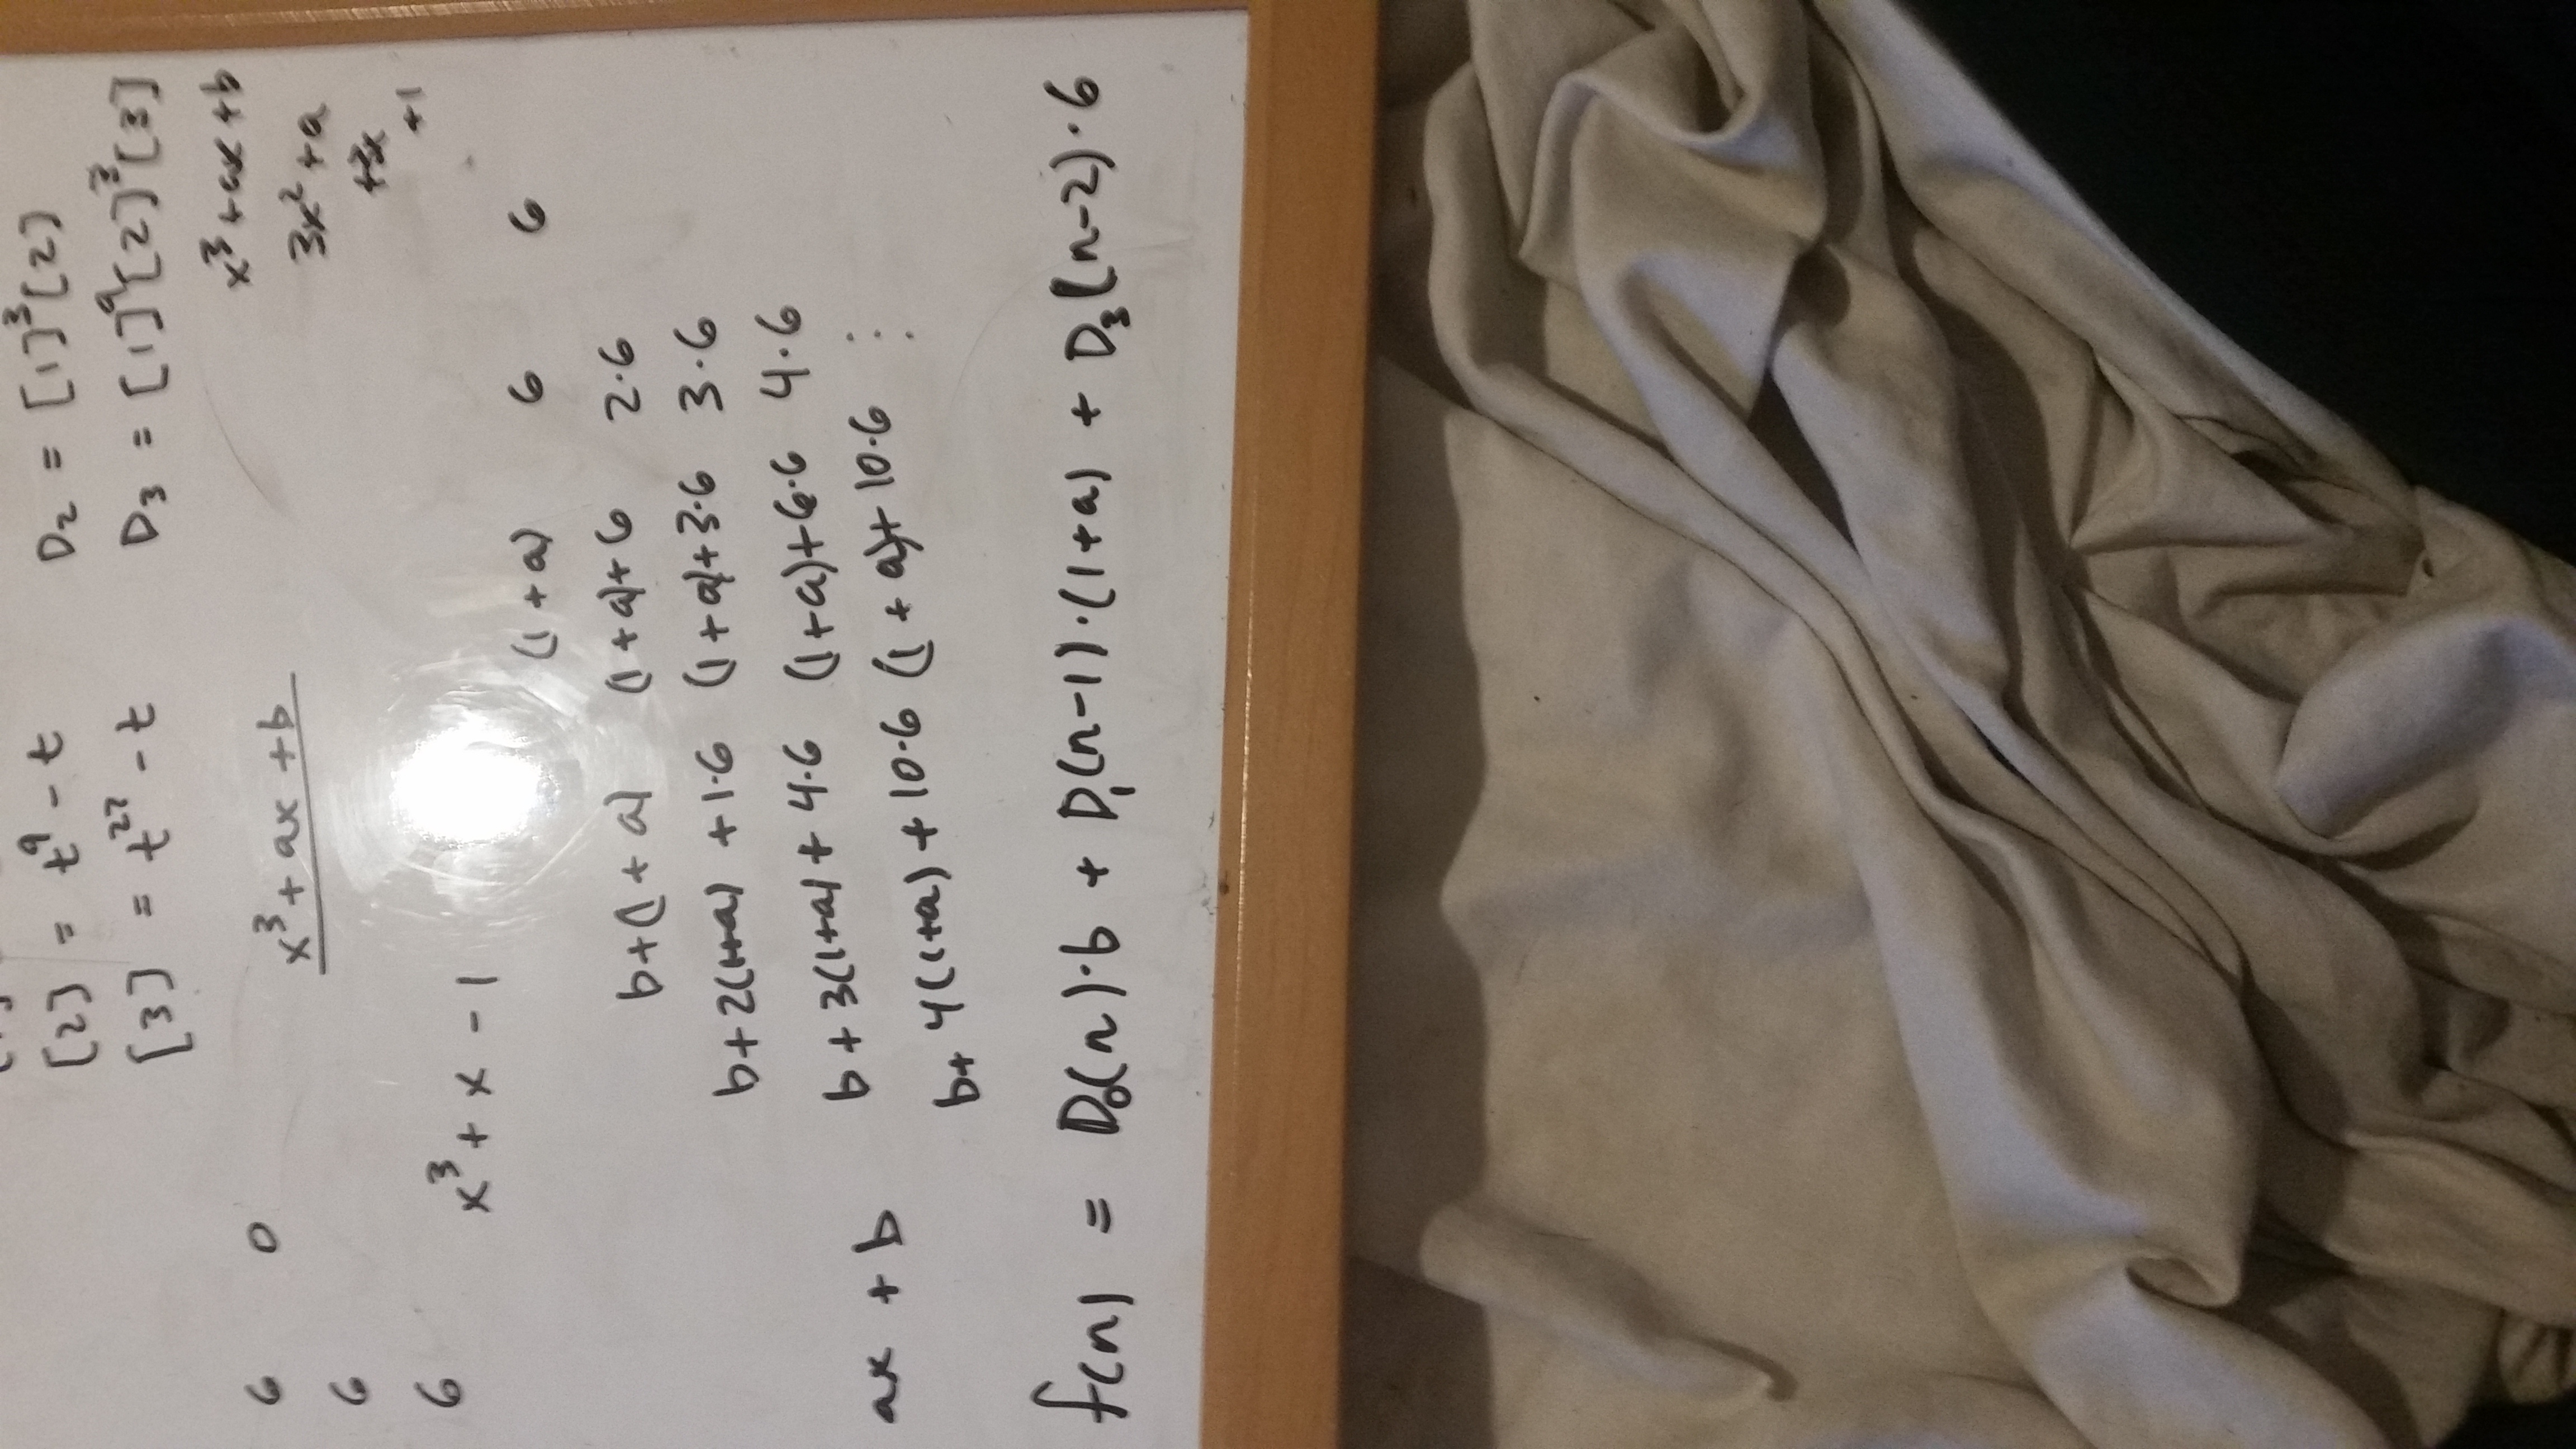 [2] = t⁹ - t D₂ = [1]³[2]
[3] = t²⁷ - t D₃ = [1]⁹[2]³[3]
x³ + ax + b
6 0 x³ + ax + b
3x² + a
6
+3x
+1
6
x³ + x - 1
(1 + a) 6 6
b+(1 + a) (1 + a)+ 6 2·6
b+2(1+a) + 1·6 (1 + a)+3·6 3·6
b + 3(1+a) + 4·6 (1+a)+6·6 4·6
ax + b
b+ 4(1+a) + 10·6 (1 + a)+ 10·6 ⋮
f(n) = D₀(n)·b + D₁(n-1)·(1+a) + D₃(n-2)·6